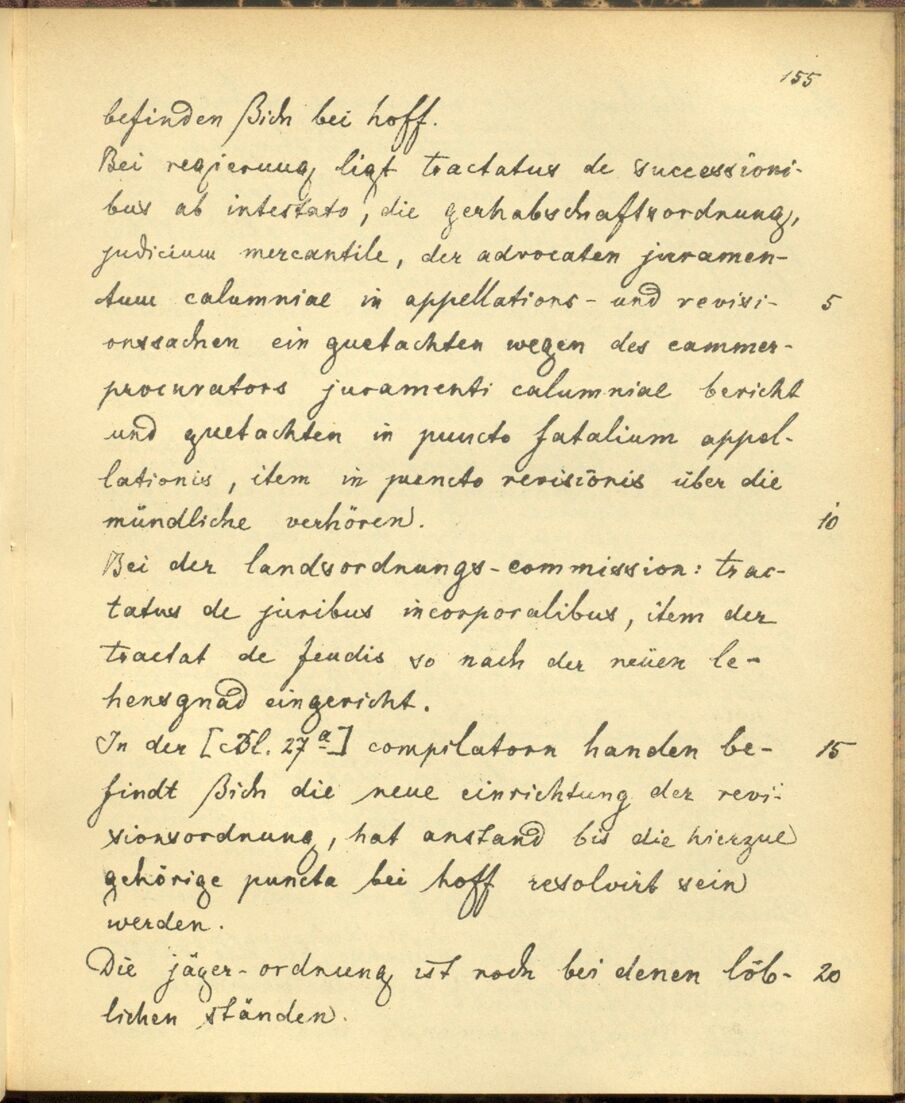 155
befinden ßich bei hoff.
Bei regierung ligt tractatus de successioni-
bus ab intestato, die gerhabschaftsordnung,
judicium mercantile, der advocaten juramen-
tum calumniae in appellations- und revisi- 5
onssachen ein guetachten wegen des cammer-
procurators juramenti calumniae bericht
und guetachten in puncto fatalium appel-
lationis, item in puncto revisionis über die
mündliche verhören. 10
Bei der landsordnungs-commission: trac-
tatus de juribus incorporalibus, item der
tractat de feudis so nach der neüen le-
hensgnad eingericht.
In der [Bl. 27a] compilatorn handen be- 15
findt ßich die neue einrichtung der revi-
sionsordnung, hat anstand bis die hierzue
gehörige puncta bei hoff resolvirt sein
werden.
Die jäger-ordnung ist noch bei denen löb- 20
lichen ständen.